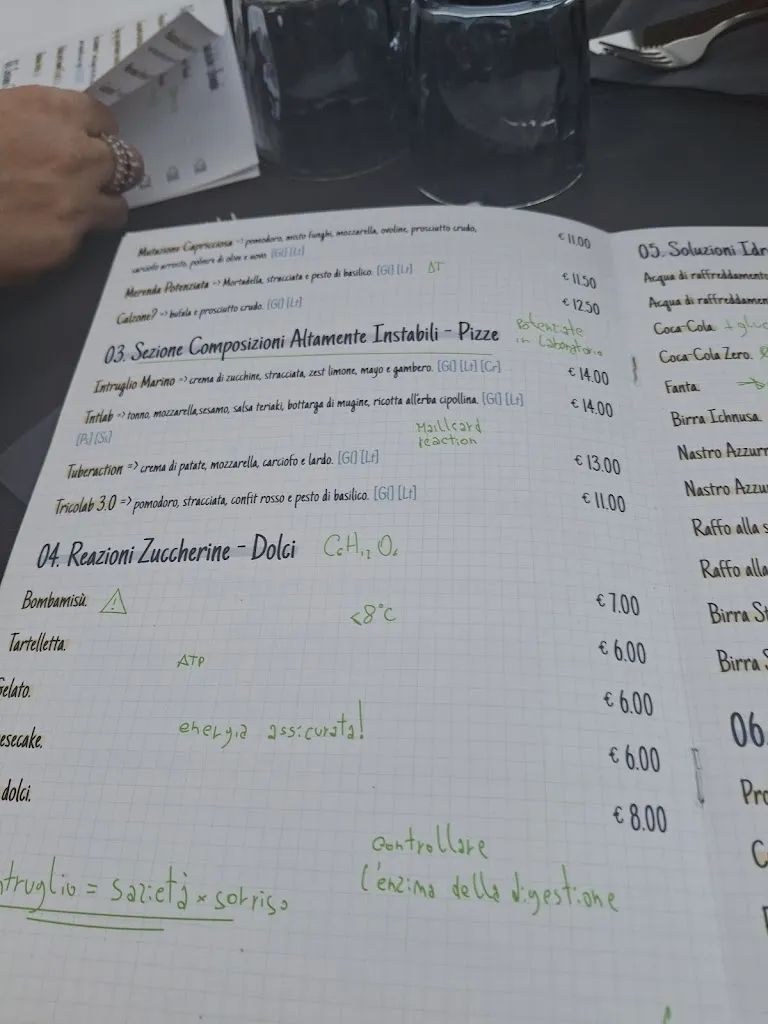 Mutazione Capricciosa => pomodoro, misto funghi, mozzarella, ovoline, prosciutto crudo, € 11.00
carciofo arrosto, polvere di olive e uovo. [Gl] [Lt]
Merenda Potenziata => Mortadella, stracciata e pesto di basilico. [Gl] [Lt] ΔT € 11.50
Calzone? => bufala e prosciutto crudo. [Gl] [Lt] € 12.50
03. Sezione Composizioni Altamente Instabili - Pizze
Potenziate
in Laboratorio
Intruglio Marino => crema di zucchine, stracciata, zest limone, mayo e gambero. [Gl] [Lt] [Cr] € 14.00
Tntlab => tonno, mozzarella,sesamo, salsa teriaki, bottarga di mugine, ricotta all'erba cipollina. [Gl] [Lt] € 14.00
[Ps] [Ss]
Maillard
reaction
Tuberaction => crema di patate, mozzarella, carciofo e lardo. [Gl] [Lt] € 13.00
Tricolab 3.0 => pomodoro, stracciata, confit rosso e pesto di basilico. [Gl] [Lt] € 11.00
04. Reazioni Zuccherine - Dolci C₆H₁₂O₆
Bombamisù. € 7.00
<8°C
Tartelletta. € 6.00
ATP
Gelato. € 6.00
energia assicurata!
esecake. € 6.00
dolci. € 8.00
Controllare
l'enzima della digestione
truglio = sazietà × sorriso
05. Soluzioni Idr
Acqua di raffreddamento
Acqua di raffreddamen
Coca-Cola. + gluc
Coca-Cola Zero.
Fanta.
Birra Ichnusa
Nastro Azzurr
Nastro Azzu
Raffo alla s
Raffo alla
Birra St
Birra S
06.
Pro
C